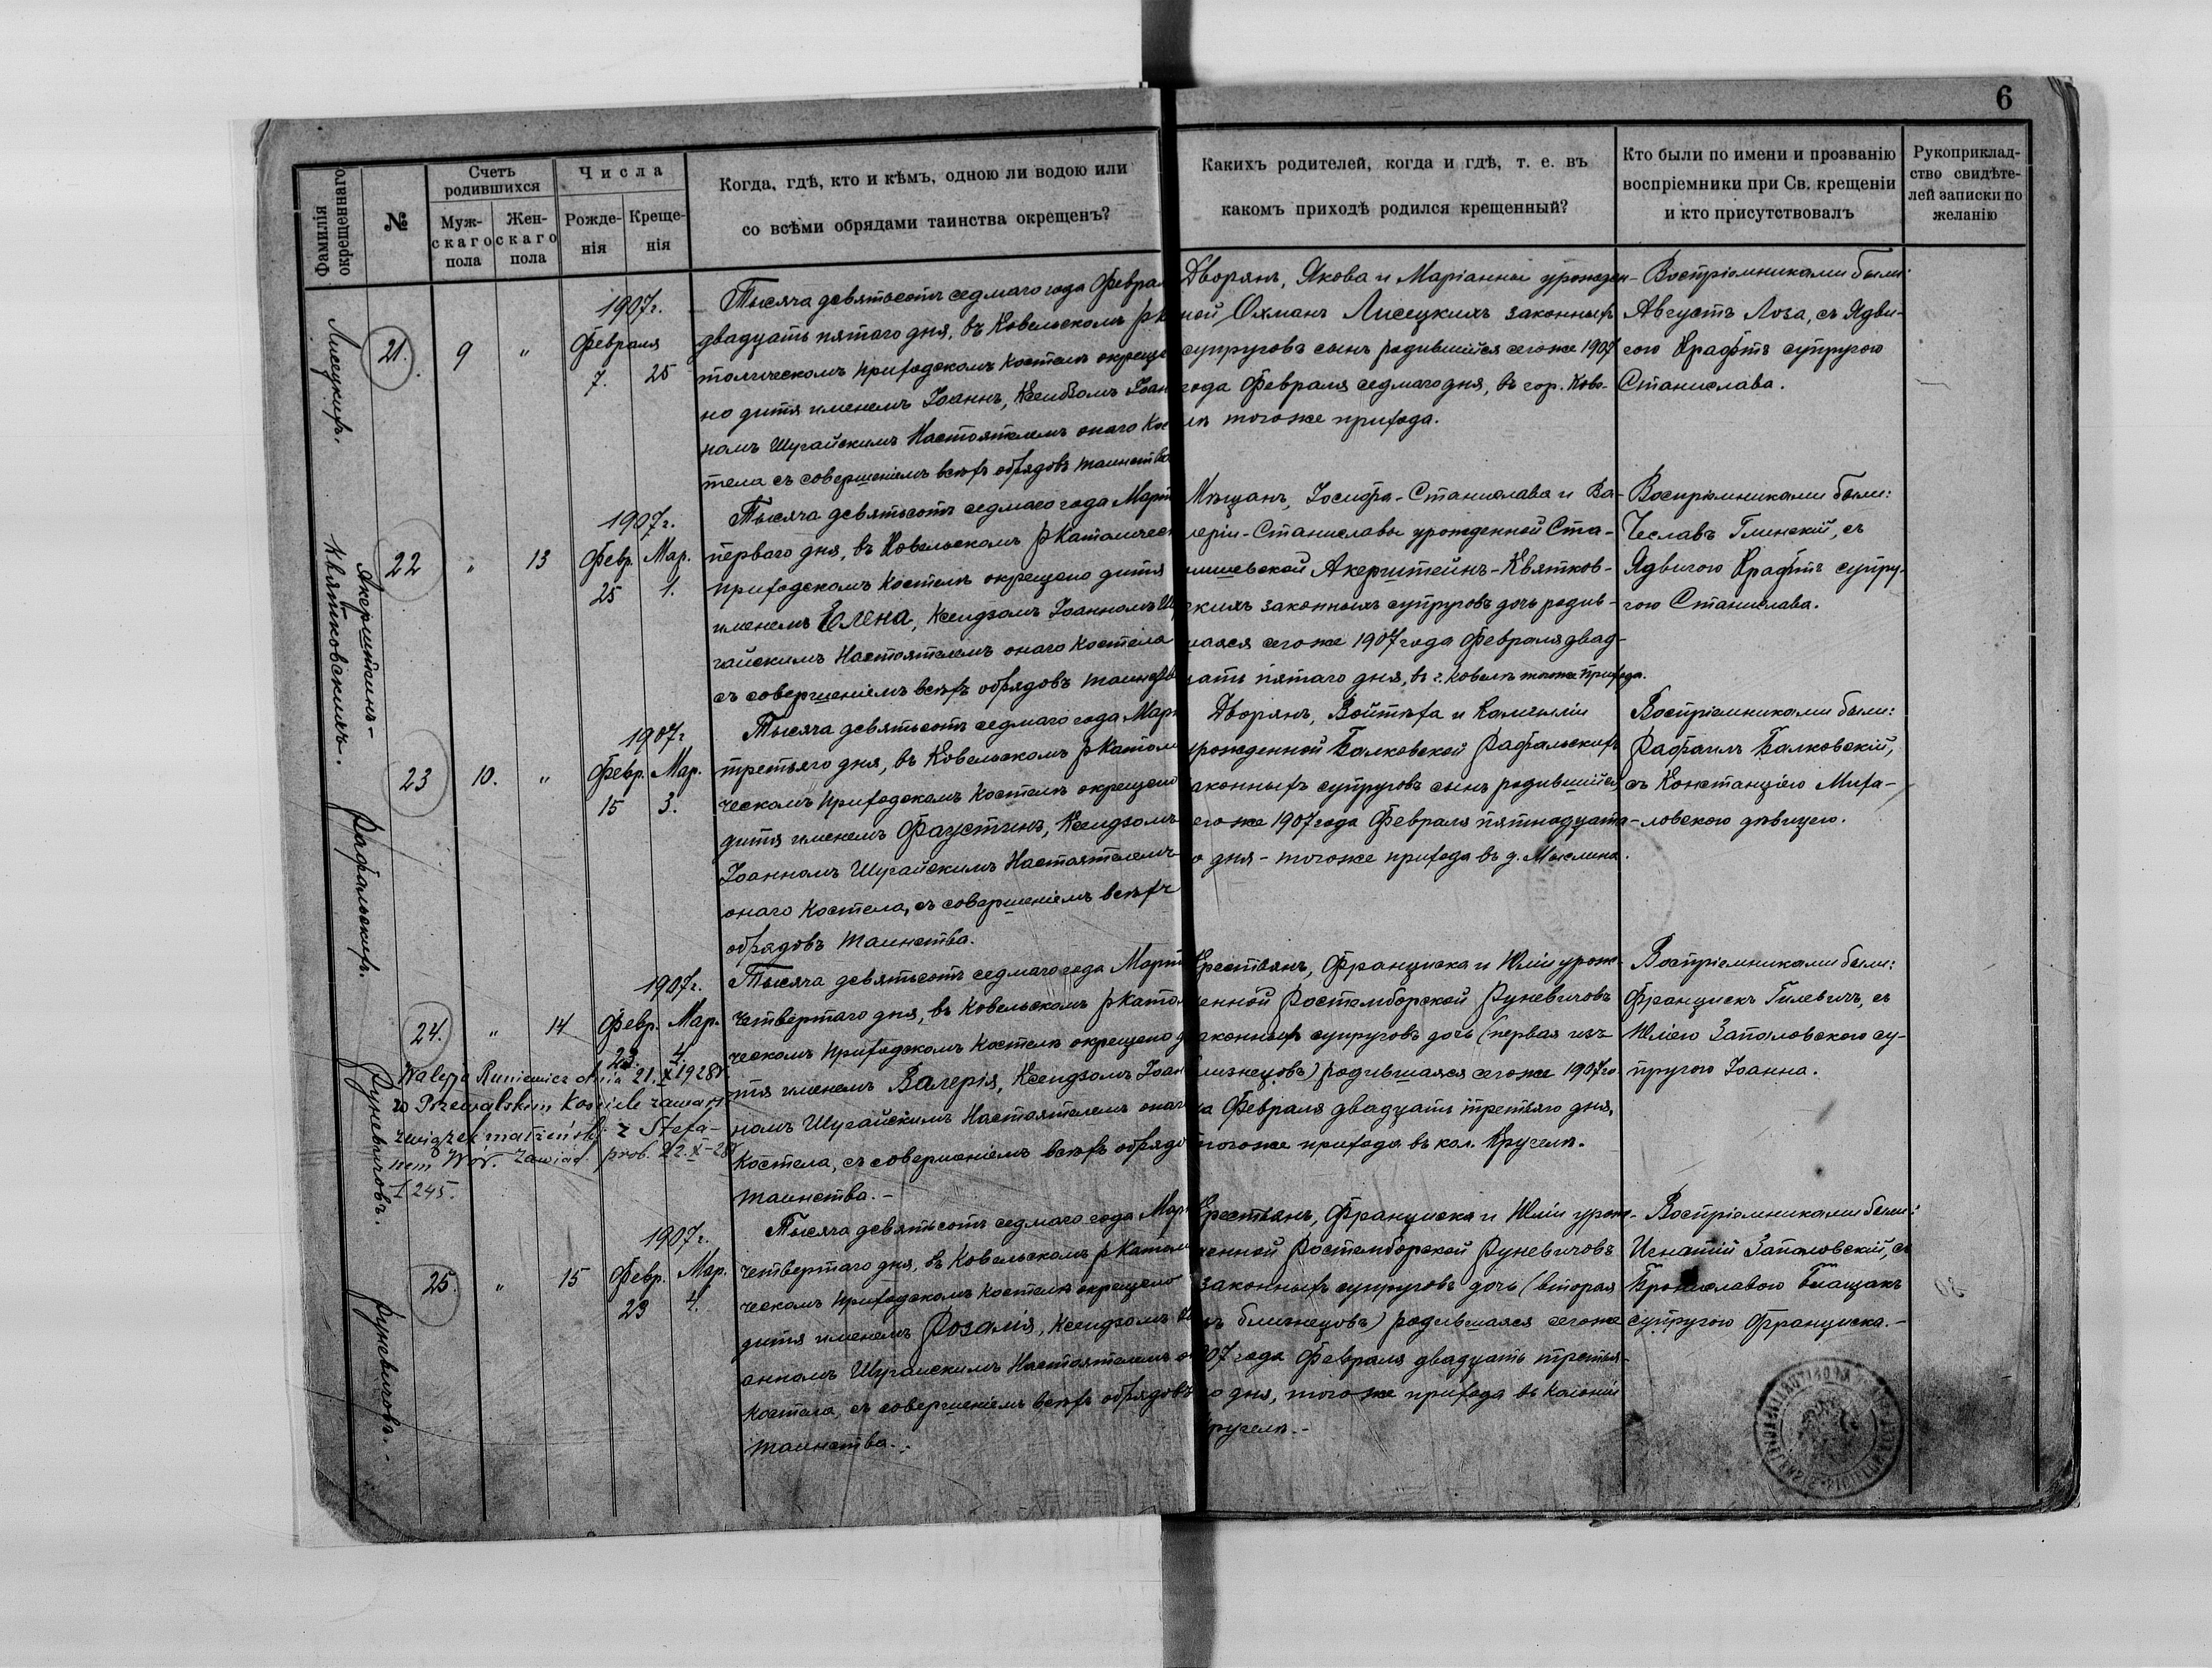 6
Фамилія окрещеннаго
№
Счетъ родившихся
Муж-скаго пола
Жен-скаго пола
Числа
Рожде-нія
Креще-нія
Когда, гдѣ, кто и кѣмъ, одною ли водою или
со всѣми обрядами таинства окрещенъ?
Какихъ родителей, когда и гдѣ, т. е. въ
какомъ приходѣ родился крещенный?
Кто были по имени и прозванію
воспріемники при Св. крещеніи
и кто присутствовалъ
Рукоприклад-
ство свидѣте-
лей записки по
желанію
Лисецкихъ.
21.
9
"
1907г.
Февраля
7. 25
Тысяча девятьсотъ седмаго года Феврал
двадцать пятаго дня, въ Ковельскомъ рК
толическомъ приходскомъ костелѣ окреще
но дитя именемъ Іоаннъ, Ксендзомъ Іоан
номъ Шугайскимъ Настоятелемъ онаго Кос
тела съ совершеніемъ всѣхъ обрядовъ таинства
Дворянъ, Якова и Маріанны урожден-
ной Охманъ Лисецкихъ законныхъ
супруговъ сынъ родившійся сегоже 1907
года Февраля седмаго дня, въ гор. Кове-
лѣ тогоже прихода.
Воспріемниками были:
Августъ Лоза, съ Ядви-
гою Крафтъ супругою
Станислава.
Акерштейнъ-
Квятковскихъ.
22
"
13
1907г.
Февр. Мар.
25 1.
Тысяча девятьсотъ седмаго года Март
перваго дня, въ Ковельскомъ рКатоличес
приходскомъ костелѣ окрещено дитя
именемъ Елена, Ксендзомъ Іоанномъ Шу
гайскимъ Настоятелемъ онаго Костела
съ совершеніемъ всѣхъ обрядовъ таинств
Мѣщанъ, Іосифа-Станислава и Ва-
леріи-Станиславы урожденной Ста-
нишевской Акерштейнъ-Квятков-
скихъ законныхъ супруговъ дочь родив-
шаяся сегоже 1907 года Февраля двад-
цать пятаго дня, въ г. Ковелѣ тогоже прихода.
Воспріемниками были:
Чеславъ Глинскій, съ
Ядвигою Крафтъ супру-
гою Станислава.
Рафальскихъ.
23
10.
"
1907г
Февр. Мар.
15 3.
Тысяча девятьсотъ седмаго года Март
третьяго дня, въ Ковельскомъ рКатоли
ческомъ приходскомъ костелѣ окрещено
дитя именемъ Фаустинъ, Ксендзомъ
Іоанномъ Шугайскимъ Настоятелемъ
онаго Костела, съ совершеніемъ всѣхъ
обрядовъ таинства.
Дворянъ, Войтѣха и Камилліи
урожденной Балковской Рафальскихъ
законныхъ супруговъ сынъ родившійся
сегоже 1907 года Февраля пятнадцата-
го дня - тогоже прихода въ д. Мыслина.
Воспріемниками были:
Рафаилъ Балковскій,
съ Констанціею Миха-
ловскою дѣвицею.
Руневичовъ.
24.
"
14
1907г.
Февр. Мар.
23. 4.
Walerja Runiewicz dnia 21.X 1928r
w Przewalskim Kościele zawarł
związek małżeński z Stefa-
nem Wór. Zawiad. prob. 22.X-28r
I 245.
Тысяча девятьсотъ седмаго года Март
четвертаго дня, въ Ковельскомъ рКатоли
ческомъ приходскомъ костелѣ окрещено д
тя именемъ Валерія, Ксендзомъ Іоан
номъ Шугайскимъ Настоятелемъ онаг
Костела, съ совершеніемъ всѣхъ обрядо
таинства.-
Крестьянъ, Франциска и Юліи урож-
денной Ростемборской Руневичовъ
законныхъ супруговъ дочь (первая изъ
близнецовъ) родившаяся сегоже 1907 го
да Февраля двадцать третьяго дня,
тогоже прихода въ кол. Кругелъ.
Воспріемниками были:
Францискъ Гилевичъ, съ
Юліею Заполовскою су-
пругою Іоанна.
Руневичовъ.-
25.
"
15
1907г.
Февр. Мар.
23 4.
Тысяча девятьсотъ седмаго года Мар
четвертаго дня, въ Ковельскомъ рКатоли
ческомъ приходскомъ костелѣ окрещено
дитя именемъ Розалія, Ксендзомъ Іо
анномъ Шугайскимъ Настоятелемъ о
Костела, съ совершеніемъ всѣхъ обрядовъ
таинства..
Крестьянъ, Франциска и Юліи урож-
денной Ростемборской Руневичовъ
законныхъ супруговъ дочь (вторая
изъ близнецовъ) родившаяся сегоже
1907 года Февраля двадцать третья-
го дня, тогоже прихода въ колоніи
Кругелъ.-
Воспріемниками были:
Игнатій Заполовскій, съ
Брониславою Блащакъ
супругою Франциска.-